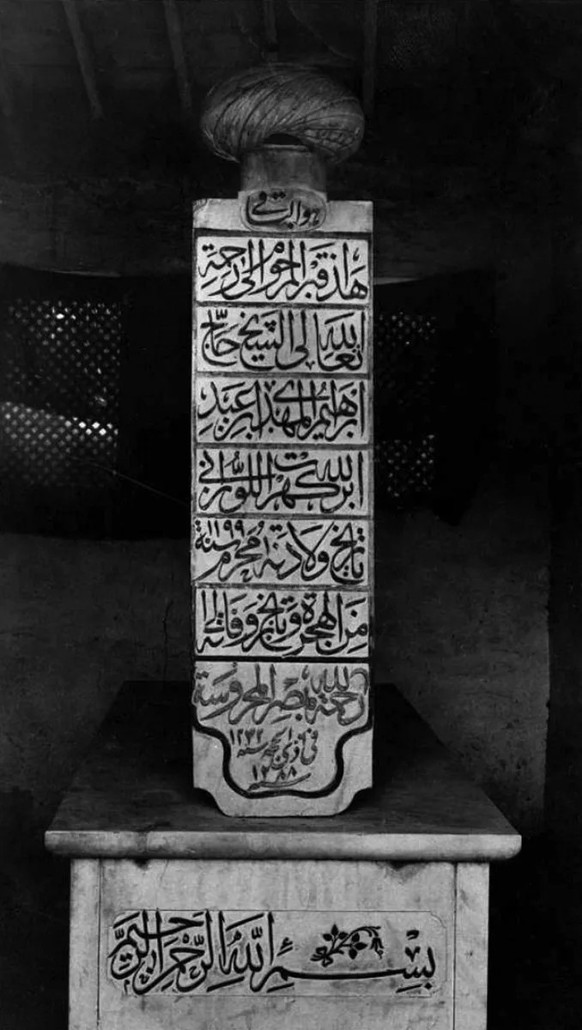 هو الباقي
هاذا قبر المرحوم الى رحمة
الله تعالى الشيخ حاج
ابراهيم المهدى ابن عبد
الله بركهرت اللوزاني
تاريخ ولادته محرم سنة ١١٩٩
من الهجرة وتاريخ وفاته الى
رحمة الله بمصر المحروسة
في ذى الحجه سنه ١٢٣٢
سنه ١٢٨٨
بسم الله الرحمن الرحيم